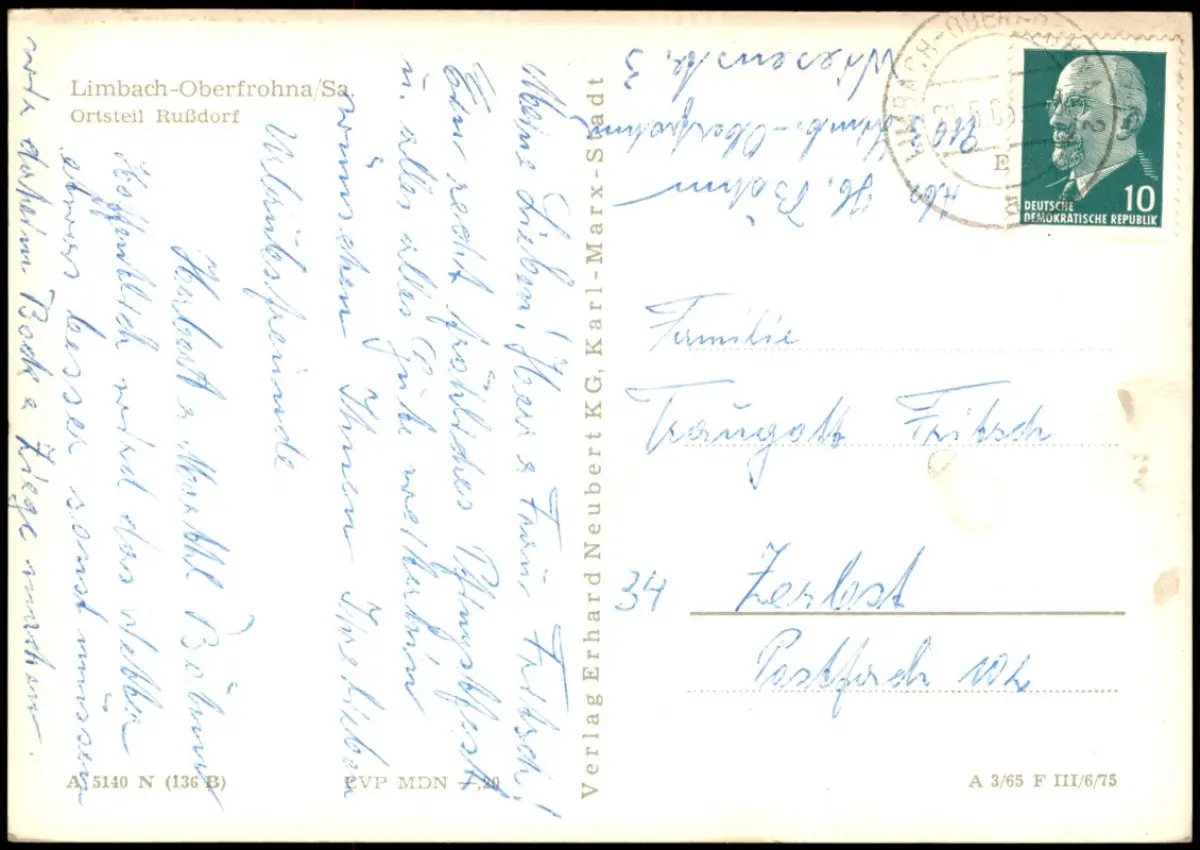 Limbach-Oberfrohna/Sa.
Ortsteil Rußdorf
Meine Lieben, Herr & Frau Fritsch!
Ein recht fröhliches Pfingstfest
u. alles alles Gute weiterhin
wünschen Ihnen Ihre lieben
Urlaubsfreunde
Herbert & Böhm
Hoffentlich wird das Wetter
etwas besser sonst müssen
wir daheim Bock & Ziege machen.
Verlag Erhard Neubert KG, Karl-Marx-Stadt
Abs. H. Böhm
Limb.-Oberfrohna
Wiesenstr. 3
LIMBACH-OBERFROHNA
E
10
DEUTSCHE
DEMOKRATISCHE REPUBLIK
Familie
Traugott Fritsch
34 Zerbst
Postfach 102
A 5140 N (136 B)
EVP MDN -,20
A 3/65 F III/6/75